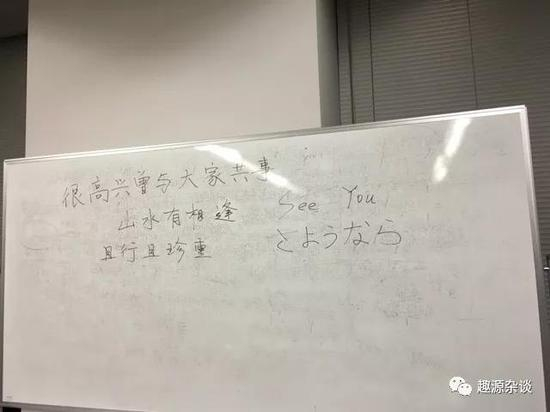 很高兴曾与大家共事
山水有相逢
且行且珍重
See You
さようなら
趣源杂谈